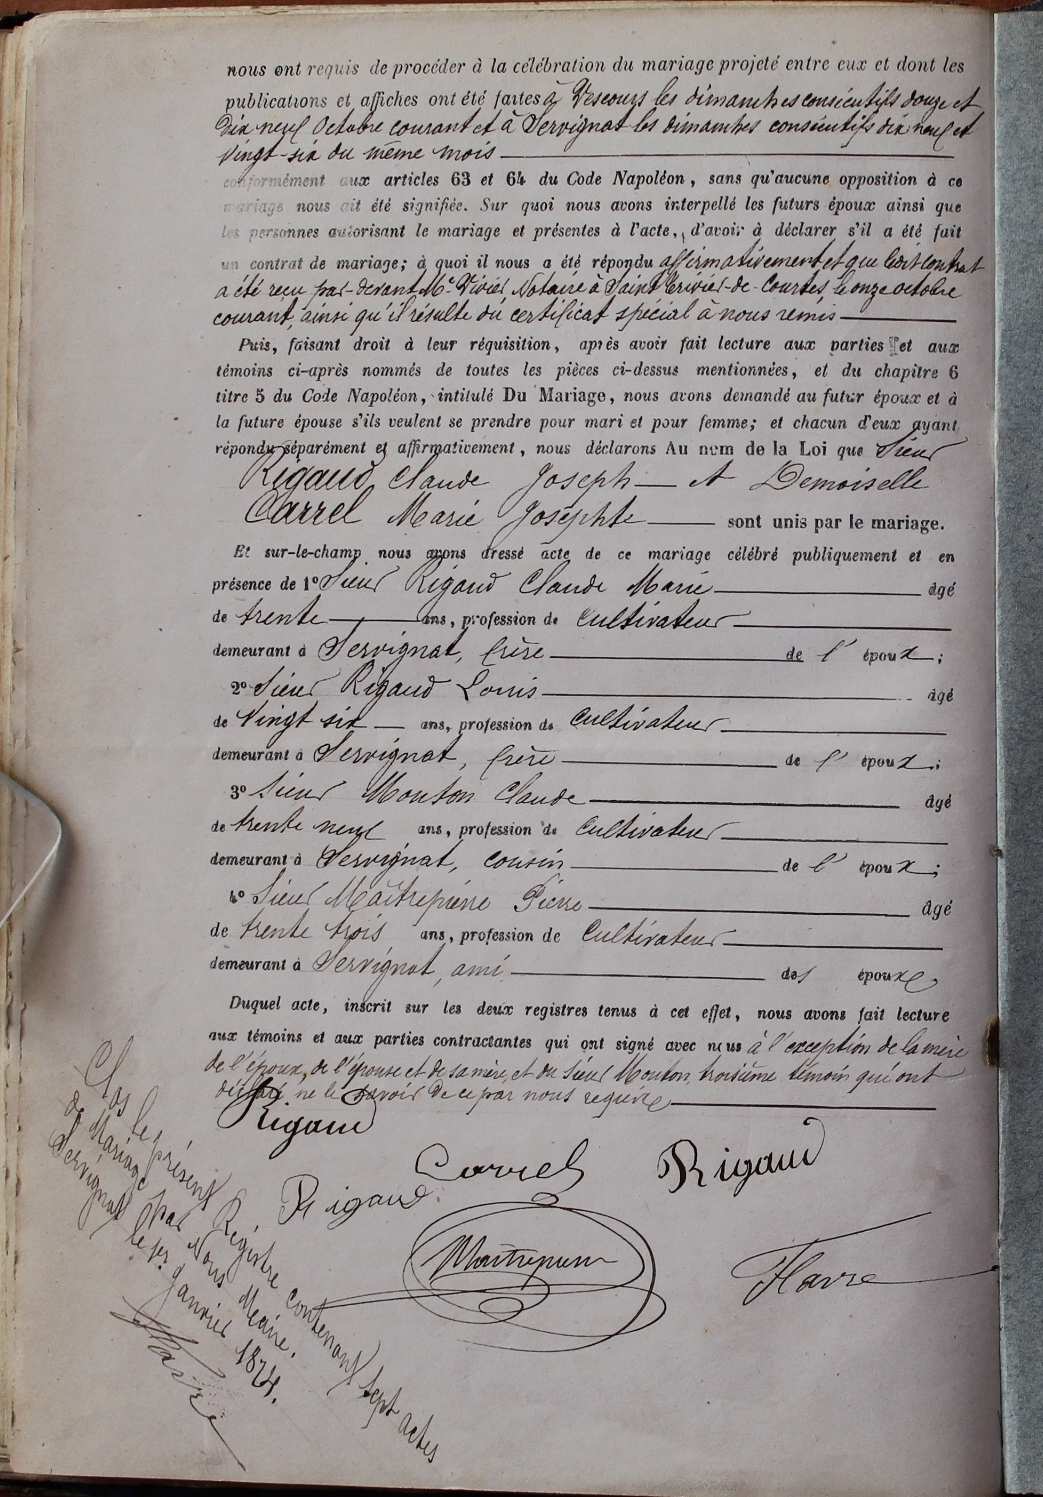 nous ont requis de procéder à la célébration du mariage projeté entre eux et dont les
publications et affiches ont été faites à Vescours les dimanches consécutifs douze et
dix neuf Octobre courant et à Servignat les dimanches consécutifs dix neuf et
vingt-six du même mois
conformément aux articles 63 et 64 du Code Napoléon, sans qu'aucune opposition à ce
mariage nous ait été signifiée. Sur quoi nous avons interpellé les futurs époux ainsi que
les personnes autorisant le mariage et présentes à l'acte, d'avoir à déclarer s'il a été fait
un contrat de mariage; à quoi il nous a été répondu affirmativement et que ledit contrat
a été reçu par-devant Me Vivier Notaire à Saint Trivier-de-Courtes, le onze octobre
courant, ainsi qu'il résulte du certificat spécial à nous remis
Puis, faisant droit à leur réquisition, après avoir fait lecture aux parties et aux
témoins ci-après nommés de toutes les pièces ci-dessus mentionnées, et du chapitre 6
titre 5 du Code Napoléon, intitulé Du Mariage, nous avons demandé au futur époux et à
la future épouse s'ils veulent se prendre pour mari et pour femme; et chacun d'eux ayant
répondu séparément et affirmativement, nous déclarons Au nom de la Loi que Sieur
Rigaud Claude Joseph et Demoiselle
Carrel Marie Josephte sont unis par le mariage.
Et sur-le-champ nous avons dressé acte de ce mariage célébré publiquement et en
présence de 1º Sieur Rigaud Claude Marie âgé
de trente ans, profession de cultivateur
demeurant à Servignat, frère de l' époux;
2º Sieur Rigaud Louis âgé
de Vingt six ans, profession de cultivateur
demeurant à Servignat, frère de l' époux;
3º Sieur Mouton Claude âgé
de trente neuf ans, profession de cultivateur
demeurant à Servignat, cousin de l' époux;
4º Sieur Maîtrepierre Pierre âgé
de trente trois ans, profession de cultivateur
demeurant à Servignat, ami des époux
Duquel acte, inscrit sur les deux registres tenus à cet effet, nous avons fait lecture
aux témoins et aux parties contractantes qui ont signé avec nous à l'exception de la mère
de l'époux, de l'épouse et de sa mère, et du Sieur Mouton, troisième témoin qui ont
déclaré ne le savoir de ce par nous requis
Rigaud
Carrel Rigaud
Rigaud
Maitrepierre
Flavre
Clos le présent Régistre contenant sept actes
de Mariage par Nous Maire.
Servignat le 1er. Janvier 1874.